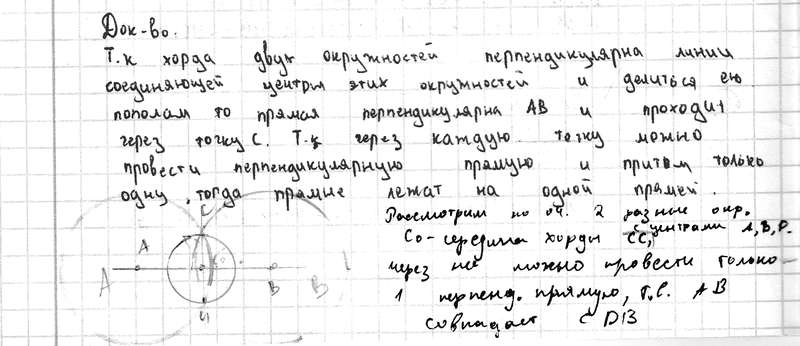 Док-во.
Т.к хорда двух окружностей перпендикулярна линии
соединяющей центры этих окружностей и делиться ею
пополам то прямая перпендикулярна АВ и проходит
через точку С. Т.к через каждую точку можно
провести перпендикулярную прямую и притом только
одну, тогда прямые лежат на одной прямей.
Рассмотрим по оч. 2 разные окр.
с центрами А, В, D.
C₀-середина хорды CC₁,
через неё можно провести только
1 перпенд. прямую, т.е. АВ
совпадает с DB
C
А
А
C₀
В
В
C₁